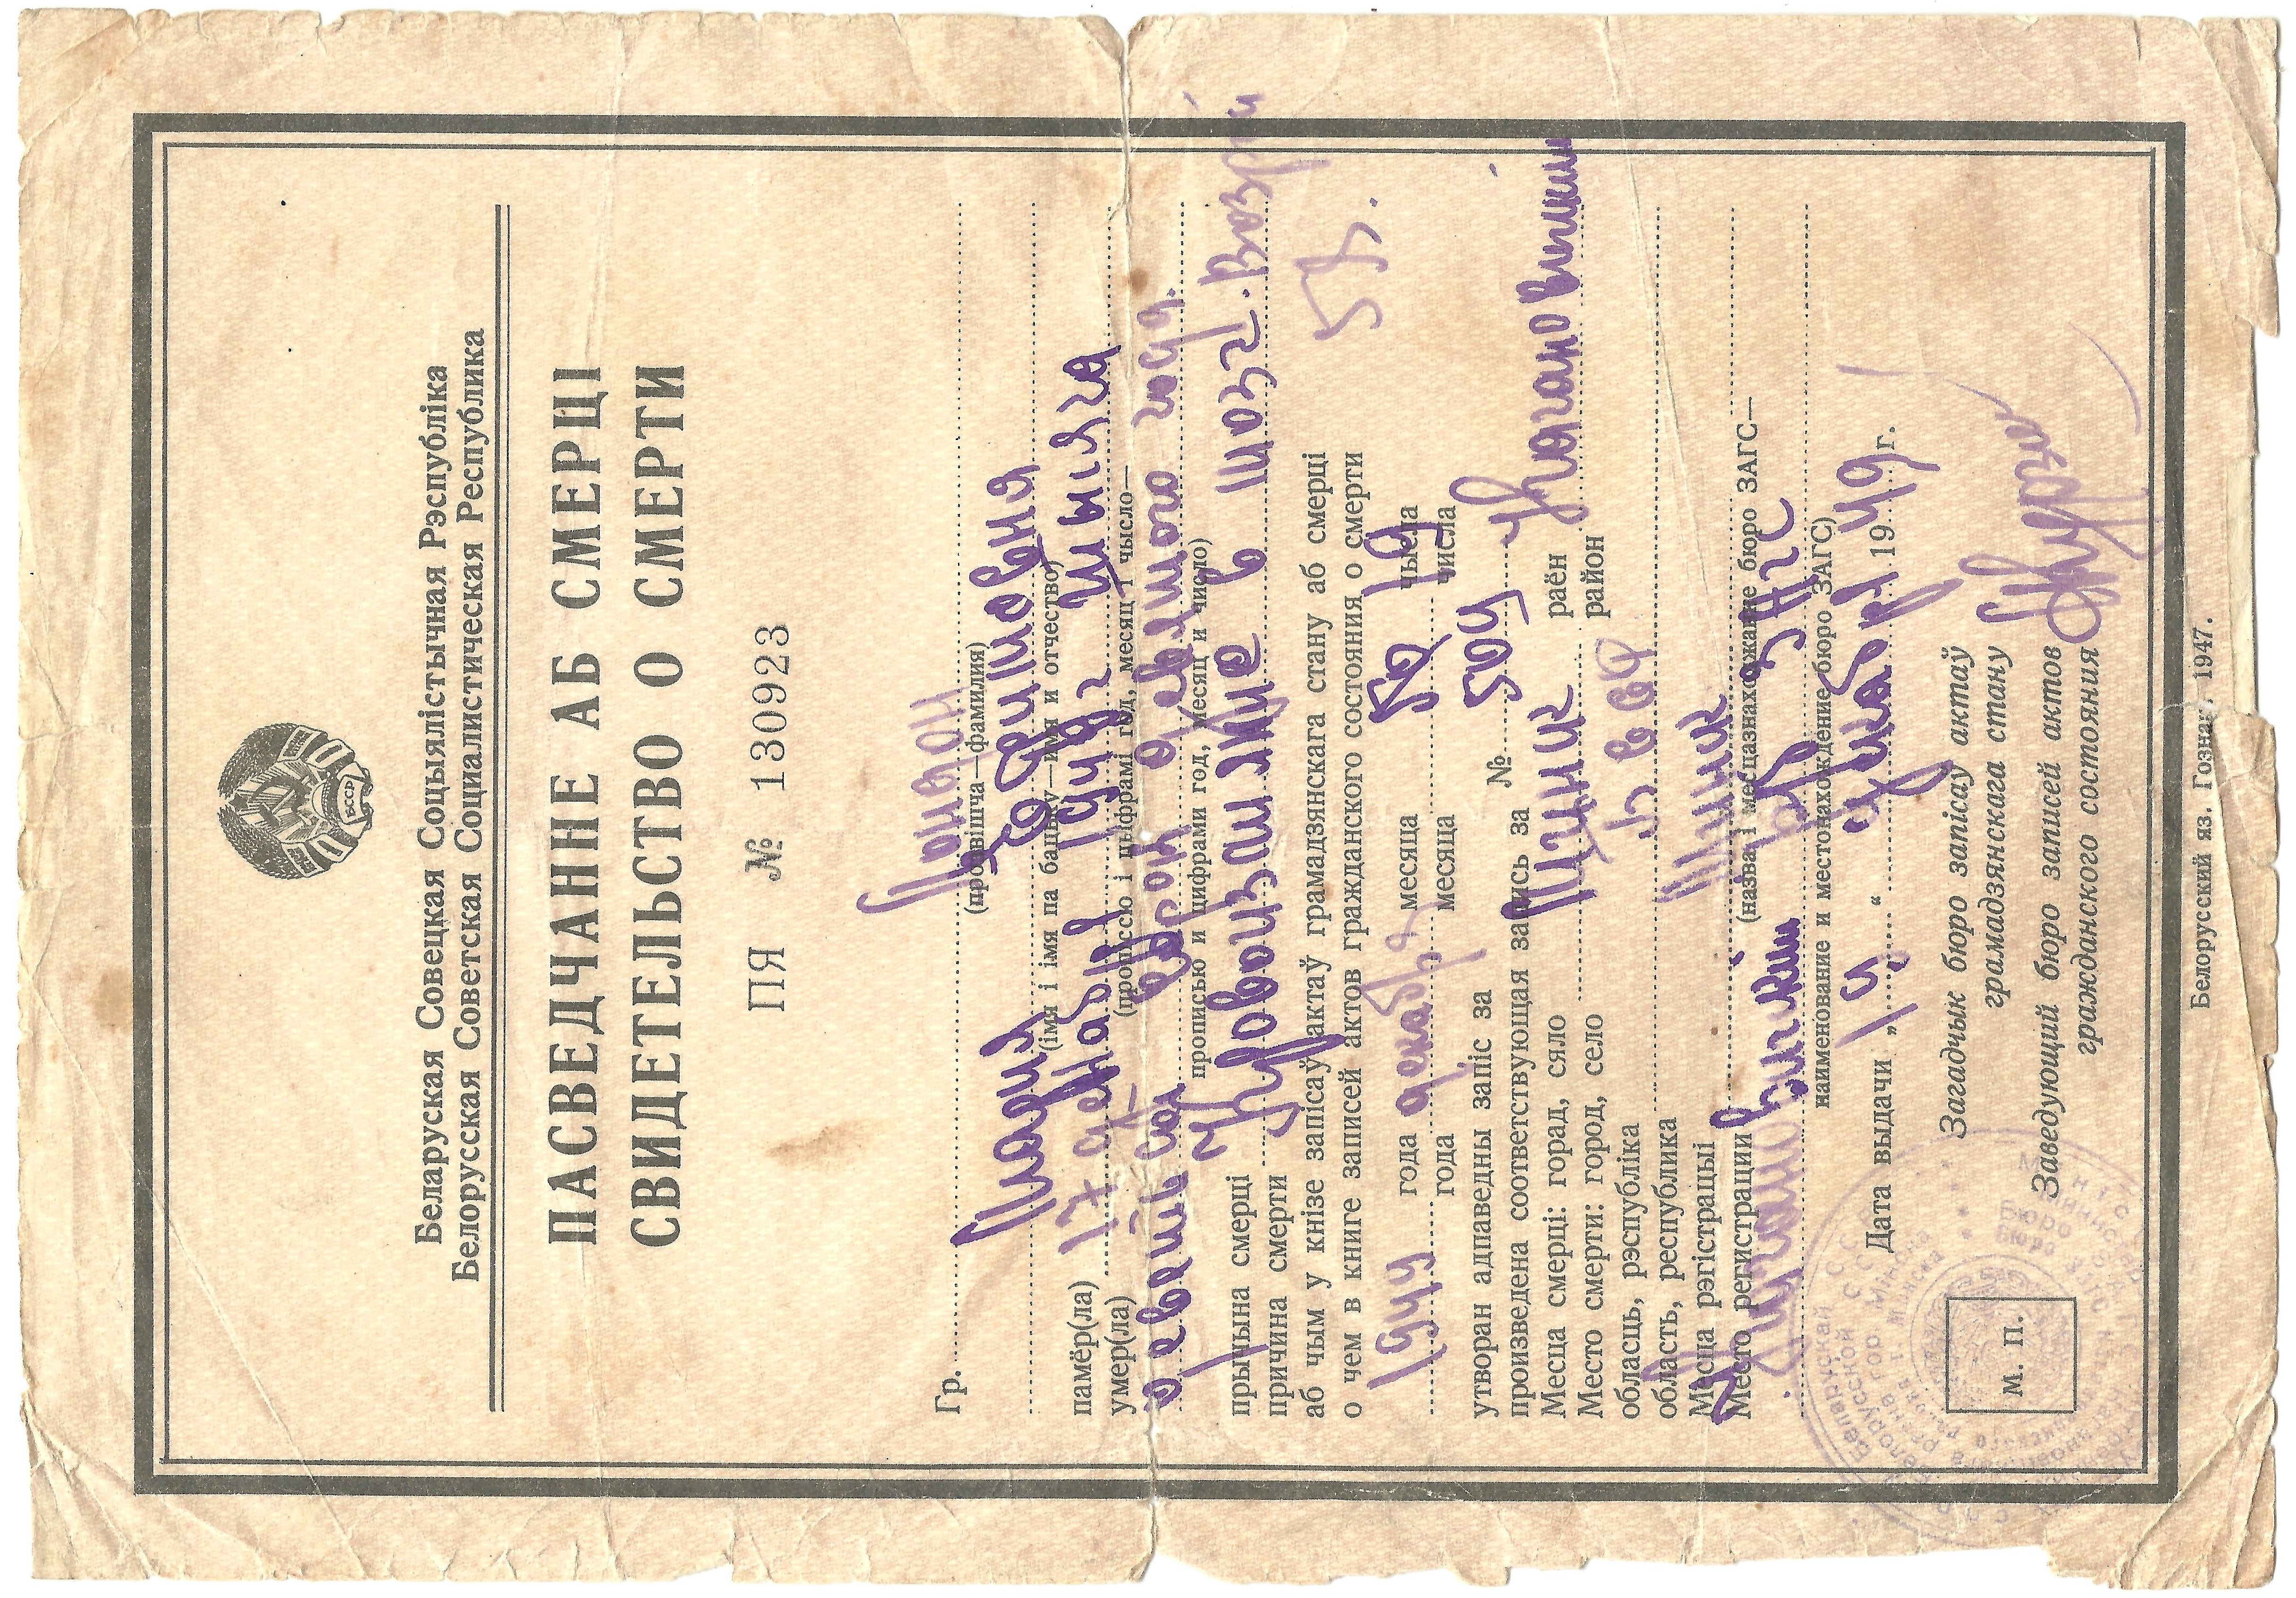 БССР
Беларуская Совецкая Соцыялістычная Рэспубліка
Белорусская Советская Социалистическая Республика
ПАСВЕДЧАННЕ АБ СМЕРЦІ
СВИДЕТЕЛЬСТВО О СМЕРТИ
ПЯ № 130923
Гр.
(прозвішча—фамилия)
Мария Ефимовна
(імя і імя па бацьку—имя и отчество)
памёр(ла)
умер(ла)
17 декабря
(прописсю і цыфрамі год, месяц і чысло—
девятого года.
прописью и цифрами год, месяц и число)
прычына смерці
причина смерти
Кровоизлияние в мозг. Возраст
57.
аб чым у кнізе запісаў актаў грамадзянскага стану аб смерці
о чем в книге записей актов гражданского состояния о смерти
года декабря месяца 19 чысла
года месяца числа
утворан адпаведны запіс за
произведена соответствующая запись за № 504
Месца смерці: горад, сяло Минск раён Кагановичский
Место смерти: город, село район
обласць, рэспубліка БССР
область, республика
Месца рэгістрацыі Минск
Место регистрации
(назва і месцазнаходжанне бюро ЗАГС—
Кагановичский ЗАГС
наименование и местонахождение бюро ЗАГС)
Дата выдачи „19“ декабря 1949 г.
Загадчык бюро запісаў актаў
грамадзянскага стану
Заведующий бюро записей актов
гражданского состояния
М. П.
Белорусский яз. Гознак. 1947.